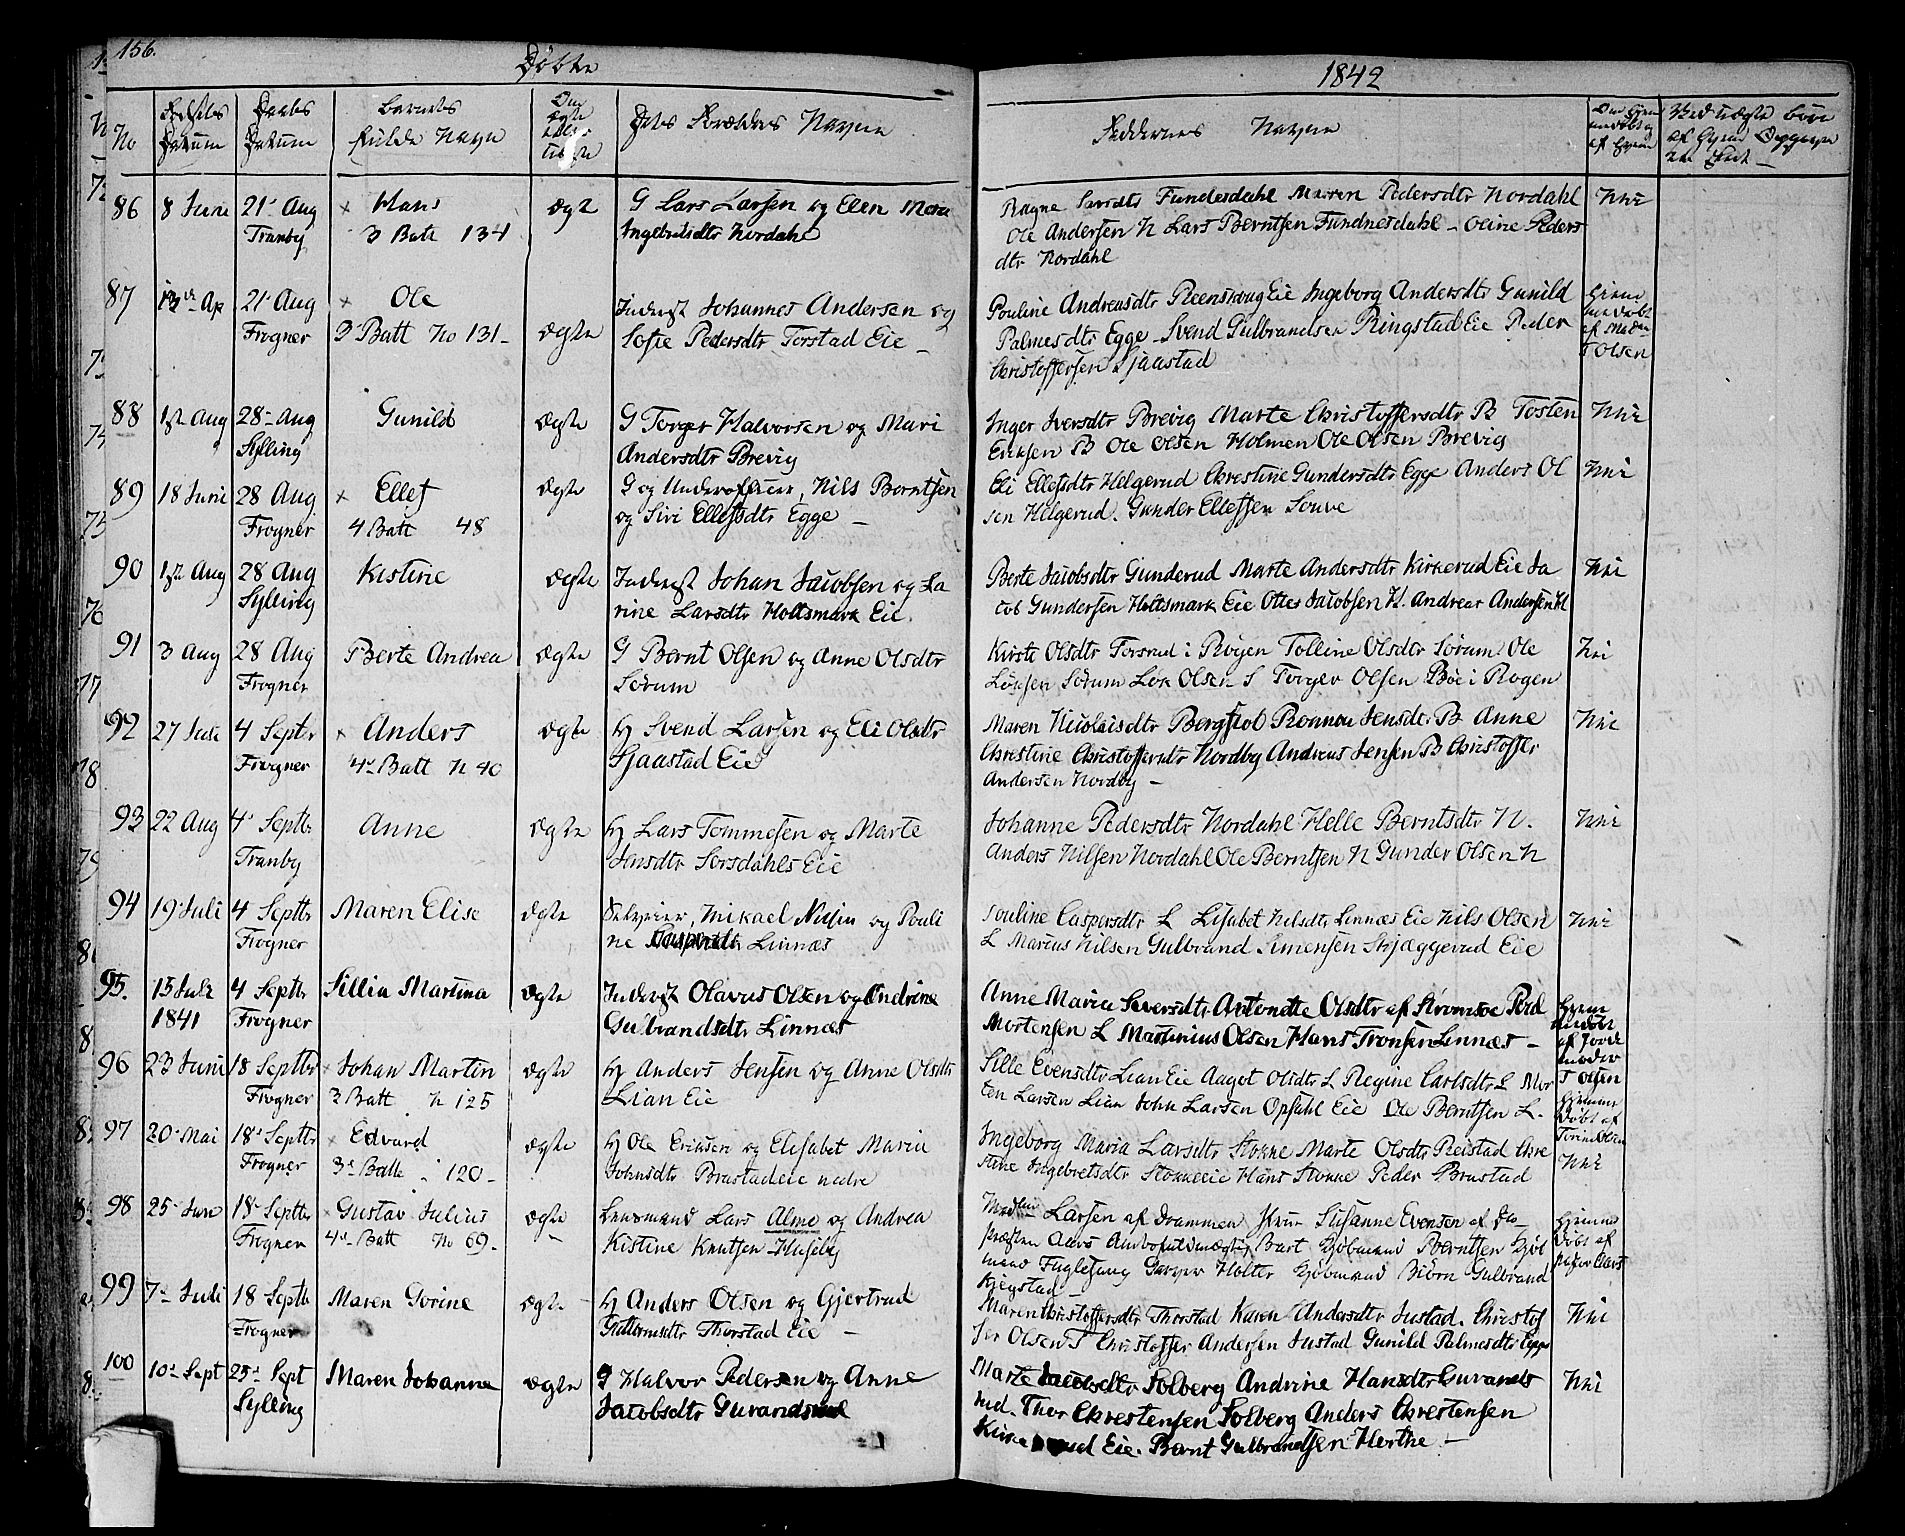 156.
Døbte
1842
No
Fødsels Datum
Daabs Datum
Barnets fulde Navn
Om ægte eller uægte
Dets Forældres Navne
Faddernes Navne
Om hjemmedøbt og af hvem
86 8 Juni 21 Aug × Hans ægte G Lars Larsen og Elen Marie
Tranby 3 Batt 134 Ingebretsdtr Nordahl
Ragne Larsdtr Fundesdahl Maren Pedersdtr Nordahl Nei
Ole Andersen N Lars Berntsen Fundnesdahl - Oline Peders
dtr Nordahl
87 13de Ap 21 Aug × Ole Inderst Johannes Andersen og
Frogner 3 Batt No 131 - ægte Sofie Pedersdtr Torstad Eie -
Pouline Andreasdtr Reenskoug Eie Ingeborg Andersdtr Gunild
Palmesdtr Egge - Svend Gulbrandsen Ringstad Eie Peder
Christoffersen Sjaastad
Hjemmedøbt af Olsen
88 1st Aug 28 Aug Gunild ægte G Torger Halvorsen og Mari
Sylling Andersdtr Brevig
Inger Iversdtr Brevig Marte Christoffersdtr B Tosten Nei
Eriksen B Ole Olsen Holmen Ole Olsen Brevig
89 18 Juni 28 Aug × Ellef ægte G og Underofficeer, Nils Berntsen
Frogner 4 Batt 48 og Siri Ellefsdtr Egge -
Eli Ellefsdtr Helgerud Christine Gundersdtr Egge Anders Ol Nei
sen Helgerud. Gunder Ellefsen Souve
90 1st Aug 28 Aug Kistine ægte Inderst Johan Jacobsen og La
Sylling rine Larsdtr Holtsmark Eie.
Berte Jacobsdtr Gunderud Marte Andersdtr Kirkerud Eie Ja Nei
cob Gundersen Holtsmark Eie Otter Jacobsen H. Andreas Andersen H
91 3 Aug 28 Aug Berte Andrea ægte G Bernt Olsen og Anne Olsdtr
Frogner Sørum
Kirsti Olsdtr Forsrud i Røyen Tolline Olsdtr Sørum Ole Nei
Løksen Sørum Lok Olsen S Torger Olsen Bøe i Røgen
92 27 Juli 4 Septr × Anders ægte H Svend Larsen og Eli Olsdtr
Frogner 4 Batt N 40 Sjaastad Eie
Maren Nicolaisdtr Bergflot Ronnou Jensdtr B Anne Nei
Christine Christoffersdtr Nordby Andreas Jensen B Christoffer
Andersen Nordby -
93 22 Aug 4 Septbr Anne ægte H Lars Tommesen og Marte
Tranby Jensdtr Sorsdahls Eie
Johanne Pedersdtr Nordahl Helle Berntsdtr N. Nei
Anders Nilsen Nordahl Ole Berntsen N Gunder Olsen N
94 19 Juli 4 Septbr Maren Elise ægte Selveier, Mikael Nilsen og Pouli
Frogner ne Caspersdtr Linnæs
Pouline Caspersdtr L Lisabet Nelsdtr Linnæs Eie Nils Olsen Nei
L Marius Nilsen Gulbrand Simensen Skjæggerud Eie
95. 15 Juli 4 Septbr Sillia Martina ægte Inderst Olavus Olsen og Andrine
1841 Frogner Gulbrandsdtr Linnæs
Anne Maria Siversdtr Antonette Olsdtr af Strømsøe Peder
Mortensen L Martinius Olsen Hans Tronsen Linnæs -
Hjemmedøbt af Jordemoder T Olsen
96 23 Juni 18 Septbr × Johan Martin ægte H Anders Jensen og Anne Olsdtr
Frogner 3 Batt N 125 Lian Eie
Sille Evensdtr Lian Eie Aaget Olsdtr L Regine Carlsdtr L Mor
ten Larsen Lian John Larsen Opsahl Eie Ole Berntsen L.
Hjemmedøbt af Torine Olsen
97 20 Mai 18 Septbr × Edvard ægte H Ole Eriksen og Elisabet Maria
Frogner 3 Batt 120 - Johnsdtr Brastadeie nedre
Ingeborg Maria Larsdtr Stokke Marte Olsdtr Reistad Chri
stine Ingebretsdtr Stokkeeie Hans Stokke Peder Brastad Nei
98 25 Juni 18 Septbr × Gustav Julius ægte Lensmand Lars Alme og Andrea
Frogner 4 Batt No 69 - Kistine Knutsen Huseby
Larsen af Drammen Frue Susanne Evensen af
Præsten Aars Amtsfuldmægtig Bart Kjøbmand Berntsen Kjøb
mand Fuglesang Holter Kjøbmand Biørn Gulbrand
Kjegstad -
Hjemmedøbt af Pastor Aars
99 7 Juli 18 Septb Maren Torine ægte H Anders Olsen og Gjertrud
Frogner Gulbrandsdtr Thorstad Eie -
Maren Christoffersdtr Thorstad Karen Andersdtr Justad. Christof Nei
fer Olsen T Christoffer Andersen Justad Gunild Palmesdtr Egge
100 10 Sept 25 Sept Maren Johanne ægte G Halvor Pedersen og Anne
Sylling Jacobsdtr Guvandsrud
Marte Jacobsdtr Solberg Andrine Hansdtr Guvands Nei
rud. Thor Christensen Solberg Anders Christensen
Kirkerud Eie. Bernt Gulbrandsen Herthe -